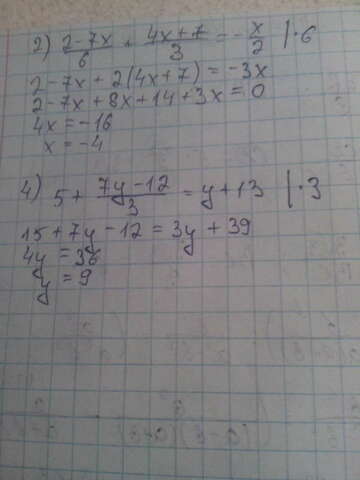 2) (2-7x)/6 + (4x+7)/3 = -x/2 | ·6
2-7x+2(4x+7) = -3x
2-7x+8x+14+3x=0
4x=-16
x=-4
4) 5+ (7y-12)/3 = y+13 | ·3
15+7y-12=3y+39
4y=36
y=9